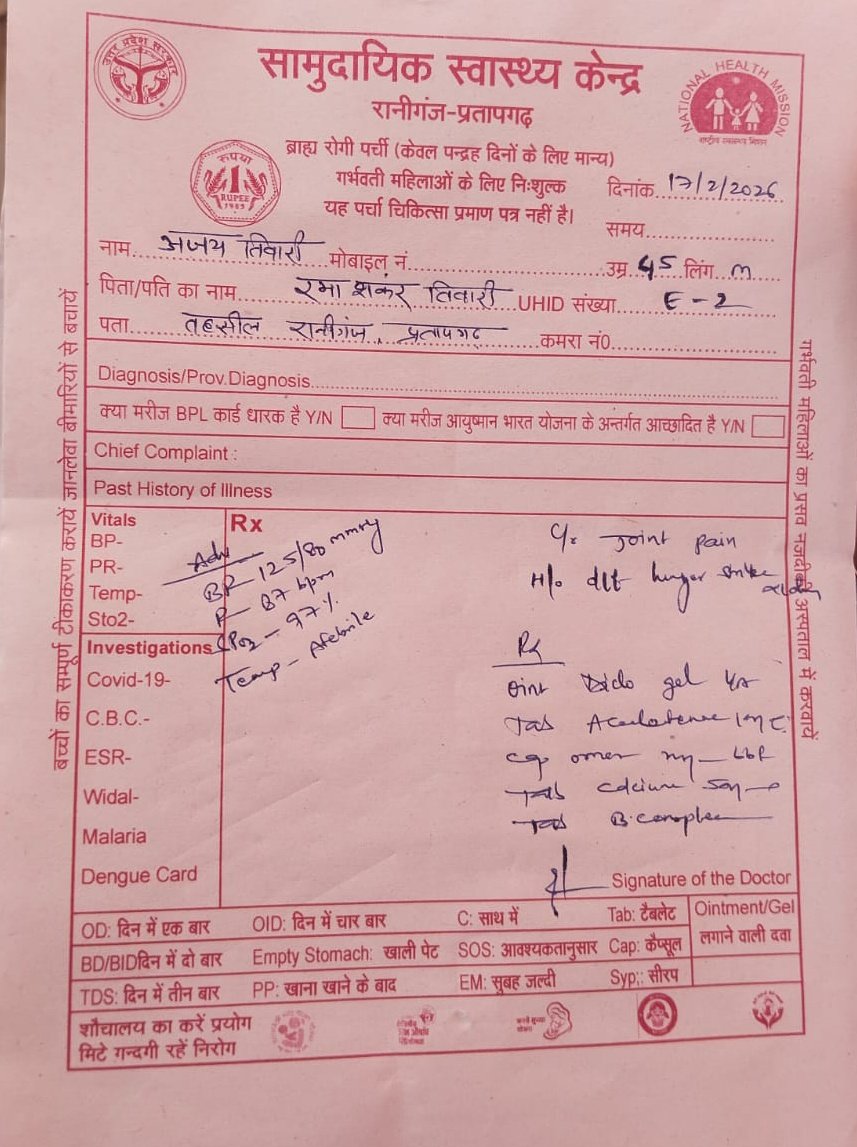 उत्तर प्रदेश सरकार
सामुदायिक स्वास्थ्य केन्द्र
रानीगंज-प्रतापगढ़
NATIONAL HEALTH MISSION
राष्ट्रीय स्वास्थ्य मिशन
रुपया
1
RUPEE
ब्राह्य रोगी पर्ची (केवल पन्द्रह दिनों के लिए मान्य)
गर्भवती महिलाओं के लिए निःशुल्क
यह पर्चा चिकित्सा प्रमाण पत्र नहीं है।
दिनांक 17/2/2026
समय
नाम अजय तिवारी मोबाइल नं. उम्र 45 लिंग m
पिता/पति का नाम रमा शंकर तिवारी UHID संख्या E-2
पता तहसील रानीगंज, प्रतापगढ़ कमरा नं0
Diagnosis/Prov.Diagnosis
क्या मरीज BPL कार्ड धारक है Y/N क्या मरीज आयुष्मान भारत योजना के अन्तर्गत आच्छादित है Y/N
Chief Complaint :
Past History of Illness
Vitals
BP-
PR-
Temp-
Sto2-
Investigations
Covid-19-
C.B.C.-
ESR-
Widal-
Malaria
Dengue Card
Rx
Adv
BP - 125/80 mmHg
P - 87 bpm
SPO2 - 97%
Temp - Afebrile
C/o Joint pain
H/o hunger strike
Rx
oint Diclo gel
Tab
cap omez
Tab calcium
Tab B.complex
Signature of the Doctor
OD: दिन में एक बार OID: दिन में चार बार C: साथ में Tab: टैबलेट Ointment/Gel
लगाने वाली दवा
BD/BIDदिन में दो बार Empty Stomach: खाली पेट SOS: आवश्यकतानुसार Cap: कैप्सूल
TDS: दिन में तीन बार PP: खाना खाने के बाद EM: सुबह जल्दी Syp;: सीरप
शौचालय का करें प्रयोग
मिटे गन्दगी रहें निरोग
बच्चों का सम्पूर्ण टीकाकरण करायें जानलेवा बीमारियों से बचायें
गर्भवती महिलाओं का प्रसव नजदीकी अस्पताल में करवायें